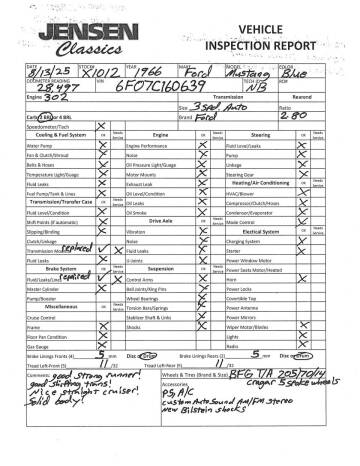 JENSEN
Classics
VEHICLE
INSPECTION REPORT
DATE 8/13/25 STOCK# X1012 YEAR 1966 MAKE Ford MODEL Mustang COLOR Blue
ODOMETER READING 28,497 VIN 6F07C160639 TECH NB RO#
Engine 302 Transmission Rearend
Size 3 Spd. Auto Ratio
Carb 2 BRL or 4 BRL Brand Ford 2.80
Speedometer/Tach X
Cooling & Fuel System OK Needs Service Engine OK Needs Service Steering OK Needs Service
Water Pump X Engine Performance X Fluid Level/Leaks X
Fan & Clutch/Shroud X Noise X Pump X
Belts & Hoses X Oil Pressure Light/Gauge X Linkage X
Temperature Light/Gauge X Motor Mounts X Steering Gear X
Fluid Leaks X Exhaust Leak X Heating/Air Conditioning OK Needs Service
Fuel Pump/Tank & Lines X Oil Level/Condition X HVAC/Blower X
Transmission/Transfer Case OK Needs Service Oil Leaks X Compressor/Clutch/Hoses X
Fluid Level/Condition X Oil Smoke X Condenser/Evaporator X
Shift Points (if automatic) X Drive Axle OK Needs Service Mode Control X
Slipping/Binding X Vibration X Electical System OK Needs Service
Clutch/Linkage Noise X Charging System X
Transmission Mounts replaced Fluid Leaks X Starter X
Fluid Leaks X U-Joints X Power Window Motor
Brake System OK Needs Service Suspension OK Needs Service Power Seats Motor/Heated
Fluid/Leaks/Lines repaired Control Arms X Horn X
Master Cylinder X Ball Joints/King Pins X Power Locks
Pump/Booster Wheel Bearings X Covertible Top
Miscellaneous OK Needs Service Torsion Bars/Springs X Power Antenna
Cruise Control Stabilizer Shaft & Links X Power Mirrors
Frame X Shocks X Wiper Motor/Blades X
Floor Pan Condition X Lights X
Gas Gauge X Radio X
Brake Linings Fronts (4) 5 mm Disc or Drum Brake Linings Rears (2) 5 mm Disc or Drum
Tread Left-Front (5) 11 /32 Tread Left-Rear (5) 11 /32
Comments: good strong runner!
good shifting trans!
Nice straight cruiser!
Solid body!
Wheels & Tires (Brand & Size) BFG T/A 205/70/14
Cragar 5 spoke wheels
Accessories
PS, A/C
custom Auto Sound AM/FM stereo
New Bilstein shocks